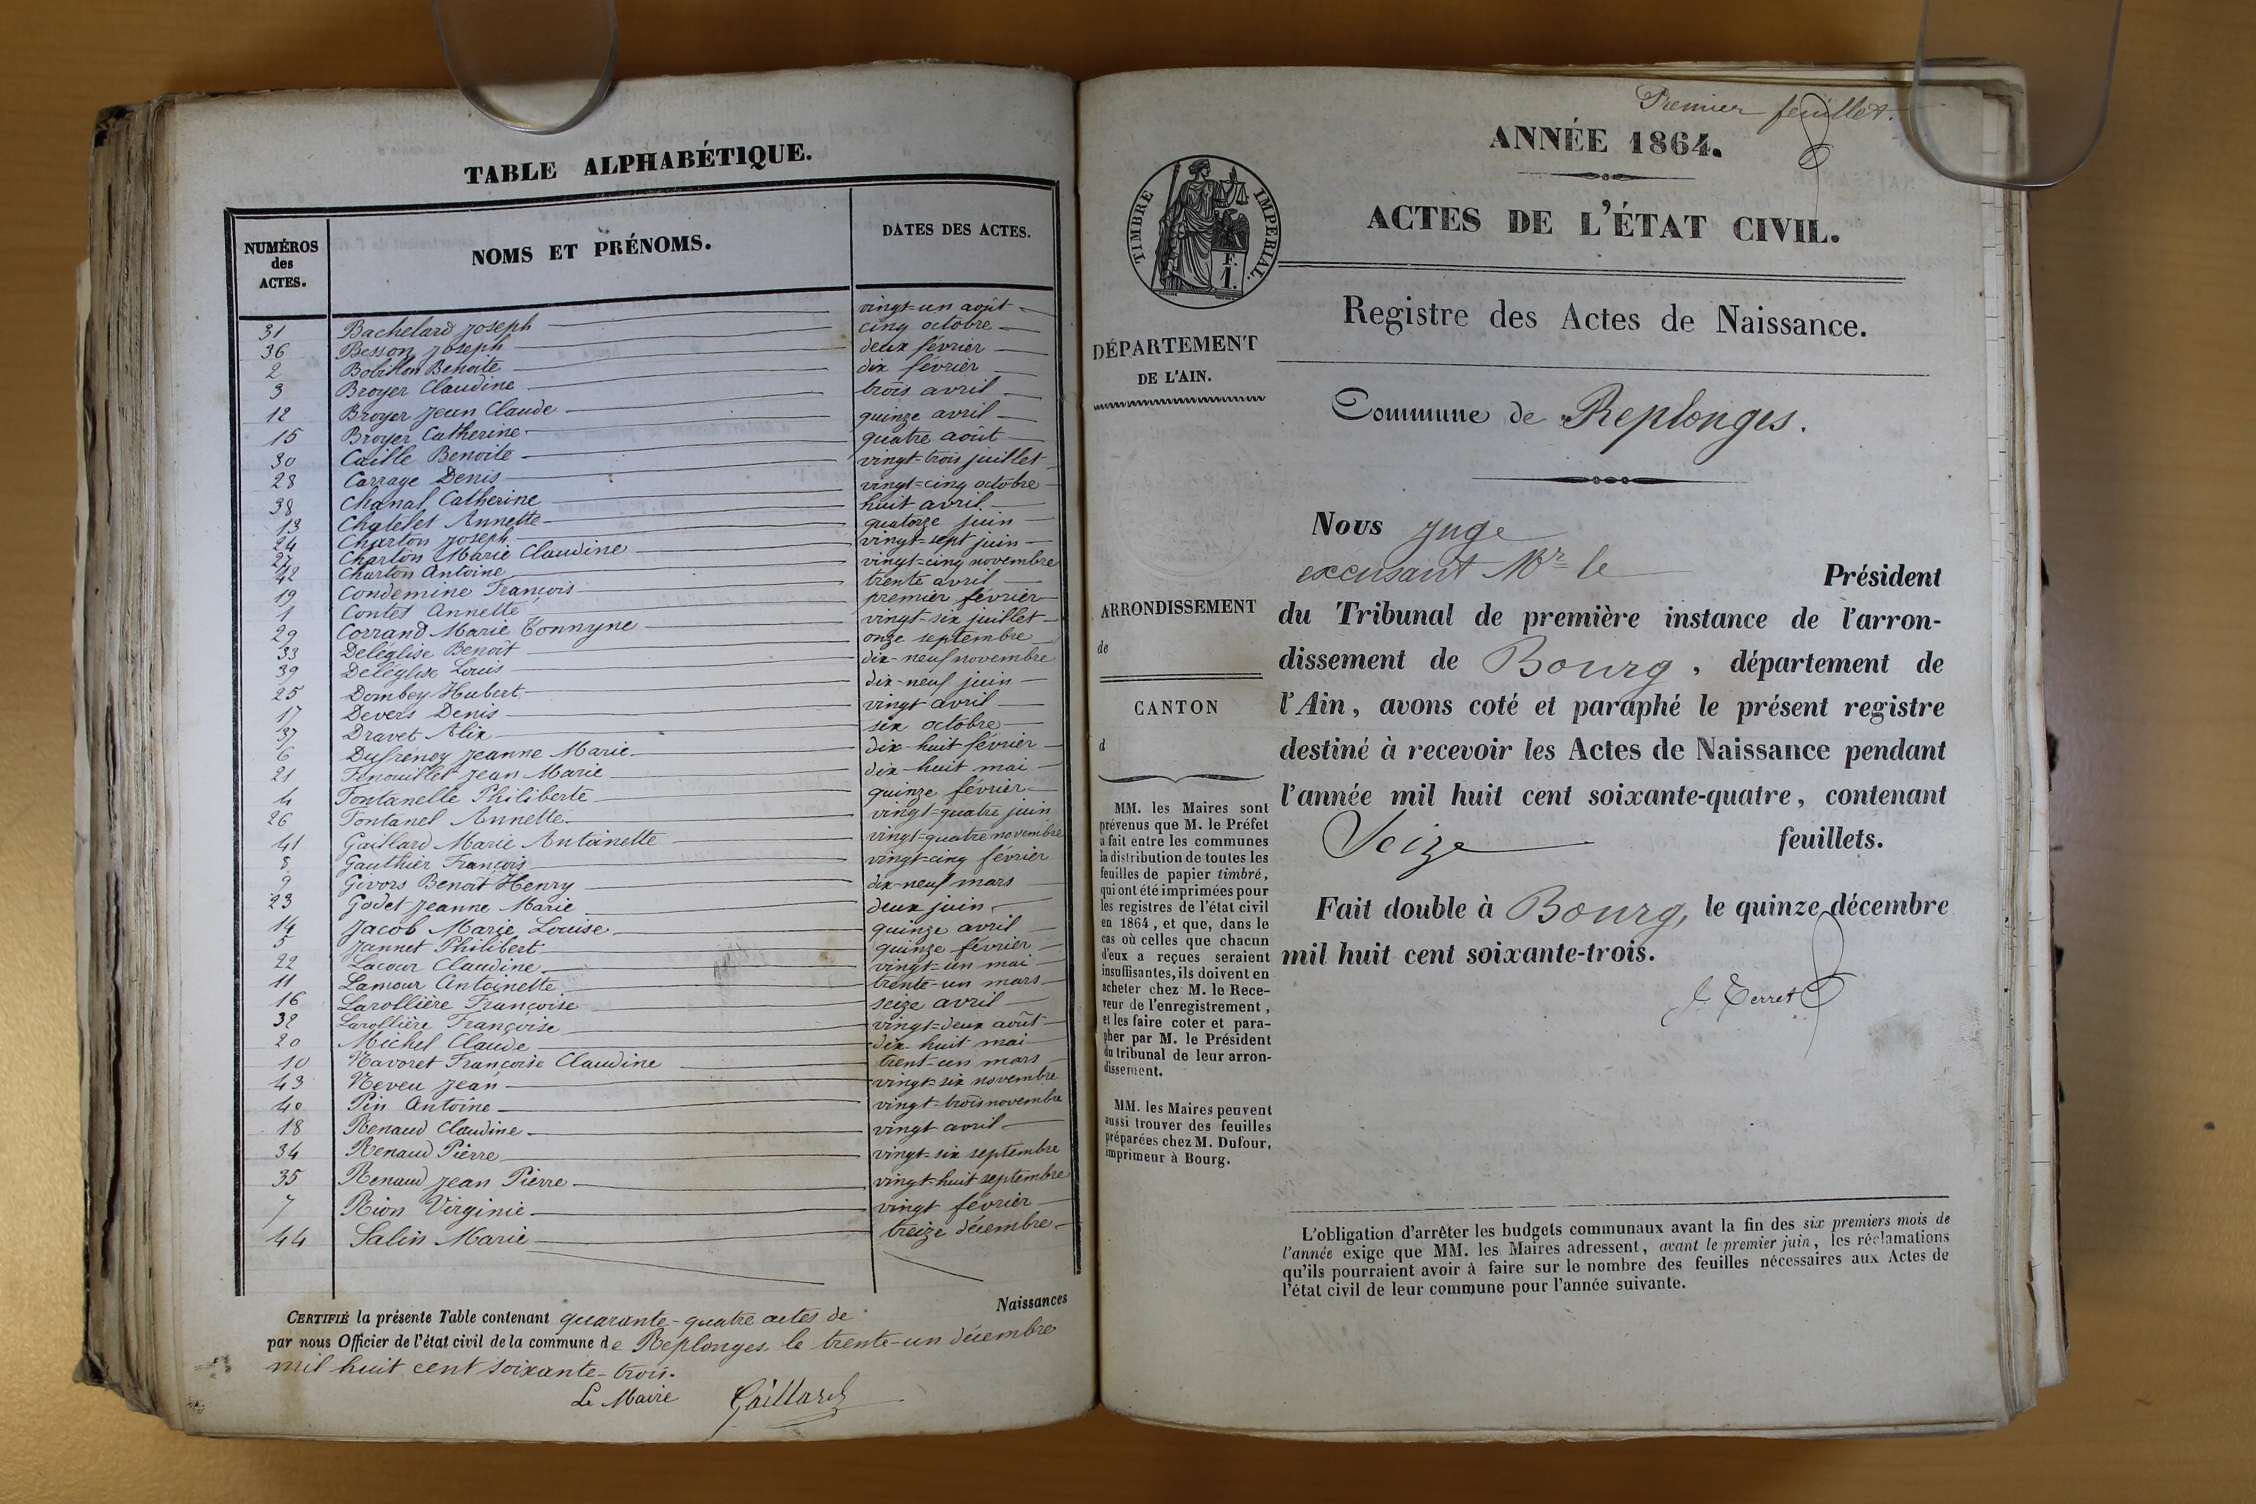 TABLE ALPHABÉTIQUE.
NUMÉROS des ACTES. NOMS ET PRÉNOMS. DATES DES ACTES.
31 Bachelard Joseph vingt-un août
36 Besson Joseph cinq octobre
2 Benoite deux février
3 Broyer Claudine dix février
12 Broyer Jean Claude trois avril
15 Broyer Catherine quinze avril
30 Caille Benoite quatre août
28 Carrage Denis vingt-trois juillet
38 Chanal Catherine vingt-cinq octobre
13 Chatelet Annette huit avril
24 Charton Joseph quatorze juin
27 Charton Marie Claudine vingt-sept juin
42 Charton Antoine vingt-cinq novembre
19 Condemine François trente avril
1 Contet Annette premier février
29 Corrand Marie Tonnyne vingt-six juillet
33 Deléglise Benoît onze septembre
39 Deléglise Louis dix-neuf novembre
25 Dombey Hubert dix-neuf juin
17 Devers Denis vingt avril
37 Dravet Alix six octobre
6 Dufrénoy Jeanne Marie dix-huit février
21 Fenouillet Jean Marie dix-huit mai
4 Fontanelle Philiberte quinze février
26 Fontanel Annette vingt-quatre juin
41 Gaillard Marie Antoinette vingt-quatre novembre
8 Gauthier François vingt-cinq février
9 Givors Benoît Henry dix-neuf mars
23 Godet Jeanne Marie deux juin
14 Jacob Marie Louise quinze avril
5 Jannet Philibert quinze février
22 Lacour Claudine vingt-un mai
11 Lamour Antoinette trente-un mars
16 Larollière Françoise seize avril
32 Larollière Françoise vingt-deux août
20 Michel Claude dix huit mai
10 Navoret Françoise Claudine trent-un mars
43 Neveu Jean vingt-six novembre
40 Pin Antoine vingt-trois novembre
18 Renaud Claudine vingt avril
34 Renaud Pierre vingt-six septembre
35 Renaud Jean Pierre vingt-huit septembre
7 Rion Virginie vingt février
44 Salin Marie treize décembre
CERTIFIÉ la présente Table contenant quarante-quatre actes de Naissances
par nous Officier de l'état civil de la commune de Replonges le trente-un décembre
mil huit cent soixante-trois.
Le Maire Gaillard
Premier feuillet.
ANNÉE 1864.
ACTES DE L'ÉTAT CIVIL.
TIMBRE IMPERIAL.
F.
1.
Registre des Actes de Naissance.
DÉPARTEMENT
DE L'AIN.
Commune de Replonges.
Nous Juge
excusant Mr le Président
du Tribunal de première instance de l'arron-
dissement de Bourg, département de
l'Ain, avons coté et paraphé le présent registre
destiné à recevoir les Actes de Naissance pendant
l'année mil huit cent soixante-quatre, contenant
Seize feuillets.
Fait double à Bourg, le quinze décembre
mil huit cent soixante-trois.
Terret
ARRONDISSEMENT
de
CANTON
d
MM. les Maires sont
prévenus que M. le Préfet
a fait entre les communes
la distribution de toutes les
feuilles de papier timbré,
qui ont été imprimées pour
les registres de l'état civil
en 1864, et que, dans le
cas où celles que chacun
d'eux a reçues seraient
insuffisantes, ils doivent en
acheter chez M. le Rece-
veur de l'enregistrement,
et les faire coter et para-
pher par M. le Président
du tribunal de leur arron-
dissement.
MM. les Maires peuvent
aussi trouver des feuilles
préparées chez M. Dufour,
imprimeur à Bourg.
L'obligation d'arrêter les budgets communaux avant la fin des six premiers mois de
l'année exige que MM. les Maires adressent, avant le premier juin, les réclamations
qu'ils pourraient avoir à faire sur le nombre des feuilles nécessaires aux Actes de
l'état civil de leur commune pour l'année suivante.